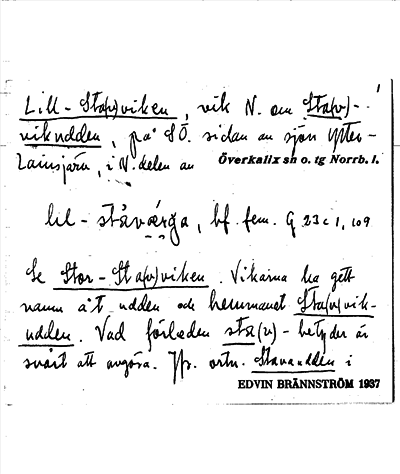 1
Lill-Sta(v)viken, vik N. om Sta(v)-
vikudden, på SÖ. sidan av sjön Ytter-
Lainsjärv, i N. delen av Överkalix sn o. tg Norrb. l.
lil-ståvärga, bf. fem. G 23 c 1, 109
Se Stor-Sta(v)viken. Vikarna ha gett
namn åt udden och hemmanet Sta(v)vik-
udden. Vad förleden sta(v)- betyder är
svårt att avgöra. Jfr. ortn. Stavaudden i
EDVIN BRÄNNSTRÖM 1937